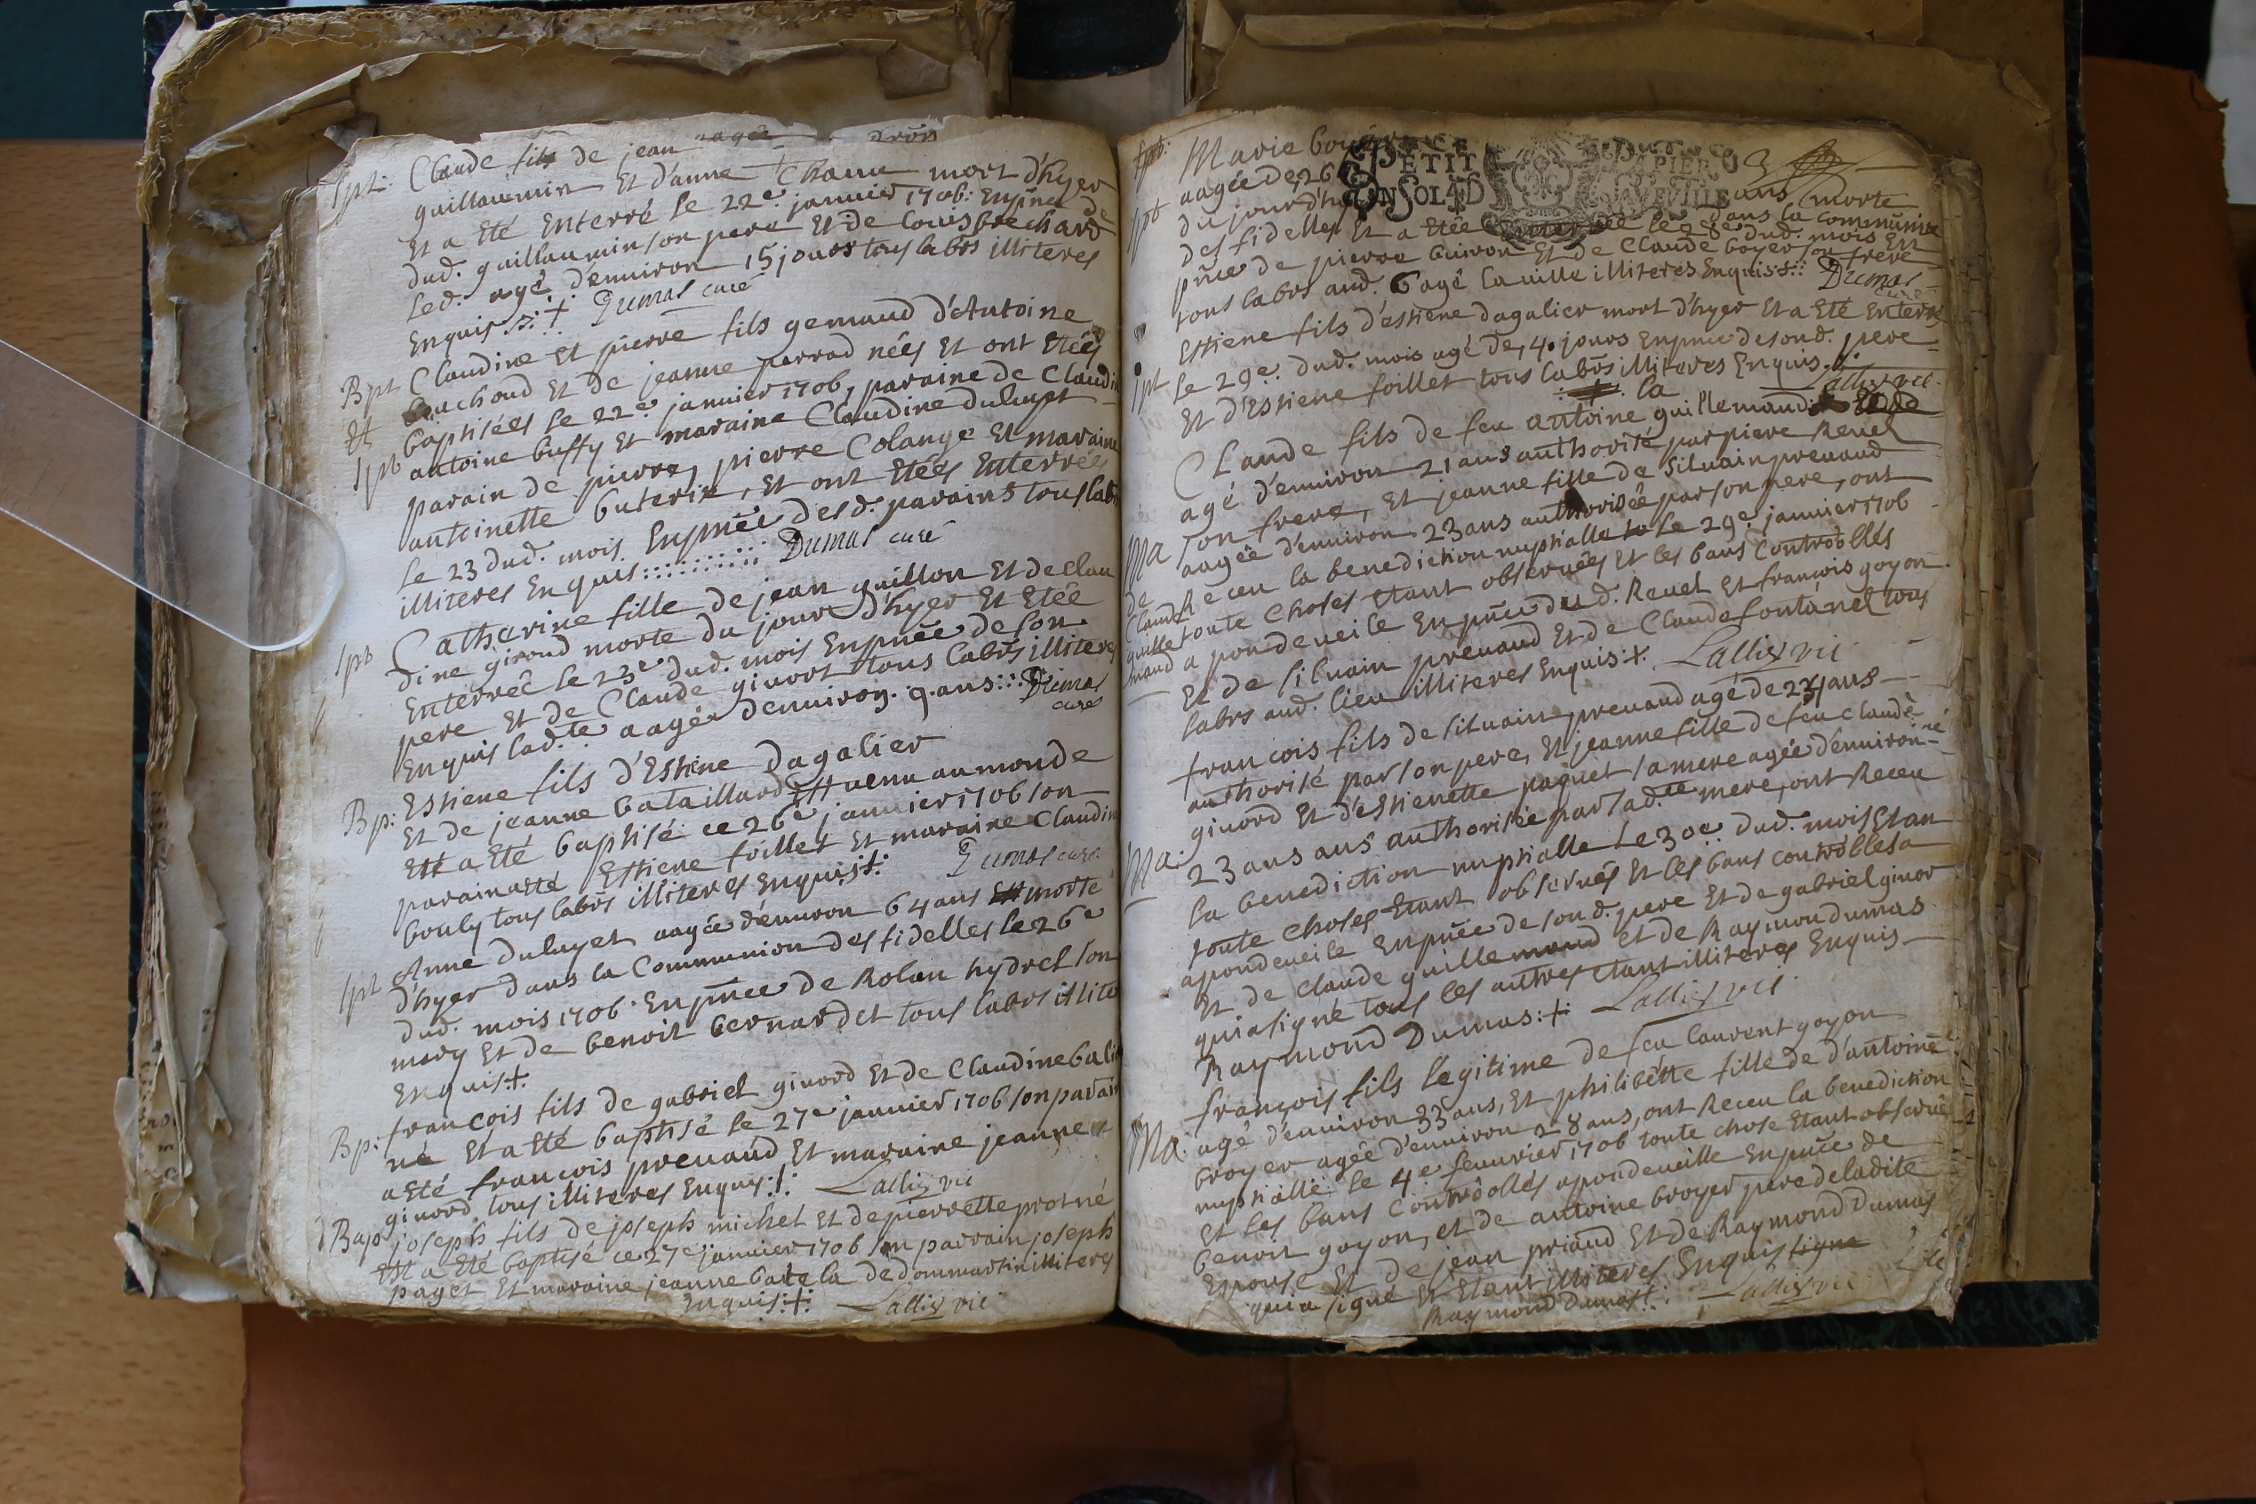 Spt: Claude fils de jean
guillaumin Et d'anne Chanu mort d'hyer
Et a Eté Enterré le 22e janvier 1706: Enpñce de
dud. guillaumin son pere Et de Louis brechard
led. agé denuiron 15 jours tous labrs illiteres
Enquis Dumas curé
Bpt Claudine Et pierre fils gemaud d'Antoine
Et buchoud Et de jeanne perrad nées Et ont Etées
Spt baptisées le 22e janvier 1706, paraine de Claudin
antoine buffy Et maraine Claudine duluyet
parain de pierre, pierre Colange Et maraine
antoinette buterin, Et ont Etées Enterrées
le 23 dud. mois Enpñce desd. parains tous labrs
illiteres Enquis Dumas curé
Spt Catherine fille de jean guillon Et de clau
dine giroud morte du jour d'hyer Et Etée
Enterrée le 23e dud. mois Enpñce de son
pere Et de Claude givort tous labrs illiteres
Enquis lad.te aagée denuiron 9. ans Dumas
curé
Bp: Estiene fils d'Estiene Dagalier
Et de jeanne bataillard Est venu au monde
Est a Eté baptisé ce 26e janvier 1706 son
parain a Eté Estiene foillet Et maraine Claudin
bouly tous labrs illiteres Enquis Dumas curé
Spt Anne duluyet aagée d'enuiron 64 ans Est morte
d'hyer dans la Communion des fidelles le 26e
dud. mois 1706. Enpñce de Rolan hydrel son
mary Et de benoit bernardet tous labrs illite
Enquis
Bp: francois fils de gabriel givord Et de Claudine bali
né Et a Eté baptisé le 27e janvier 1706 son parain
a Eté francois prevaud Et maraine jeanne
givord tous illiteres Enquis Lallix vic
Bap joseph fils de joseph michel Et de pierrette prot né
Est a Eté baptisé ce 27e janvier 1706 son parrain joseph
paget Et maraine jeanne de dommartin illiteres
Enquis Lallix vic
Spt: Marie boyer
PETIT PAPIER
aagée de 26 ans morte
du jour d'huy dans la communion
des fidelles Et a Etée dud. mois En
pñce de pierre buiron Et de Claude boyer son frere
tous labrs aud. bagé la ville illiteres Enquis Dumas
curé
Estiene fils d'estiene dagalier mort d'hyer Et a Eté Enterré
Spt le 29e. dud. mois agé de, 4. jours Enpñce de soud. pere
Et d'Estiene foillet tous labrs illiteres Enquis. Lallix vic
la
Claude fils de feu antoine guillemaud
agé d'enuiron 21 ans authorité par piere Revel
son frere, Et jeanne fille de silvain prevaud
Ma aagée d'enuiron 23 ans authorisée par son pere, ont
de Receu la benediction nuptialle le 29e janvier 1706
Claude toute choses Etant observées Et les bans Controollés
guille a pondeveile Enpñce du d. Revel Et françois goyon
maud Et de silvain prevaud Et de Claude fontanel tous
labrs aud. lieu illiteres Enquis Lallix vic
francois fils de silvain prevaud agé de 24 ans
authorité par son pere, Et jeanne fille de feu Claude
givord Et d'Estienette paquet sa mere agée d'enuiron
Ma. 23 ans ans authorisée par sad.te mere, ont Receu
la benediction nuptialle Le 30e. dud. mois Etan
toute choses Etant observés Et les bans controlles a
apondeveile Enpñce de soud. pere Et de gabriel givor
Et de claude guillemaud et de Raymon dumas
qui a signé tous les autres Etant illiteres Enquis
Raymond Dumas Lallix vic
françois fils légitime de feu Laurent goyon
Ma. agé d'enuiron 33 ans, Et philibette fille de d'antoine
broyer agée d'enuiron 28 ans, ont Receu la benediction
nuptialle le 4e feuurier 1706 toute chose Etant observé
Et les bans Controollés apondeveille Enpñce de
benoit goyon, et de antoine broyer pere de ladite
Espouse Et de jean priaud Et de Raymond Dumas
qui a signé Et Etant illiteres Enquis signe
Raymond Dumas Lallix vic